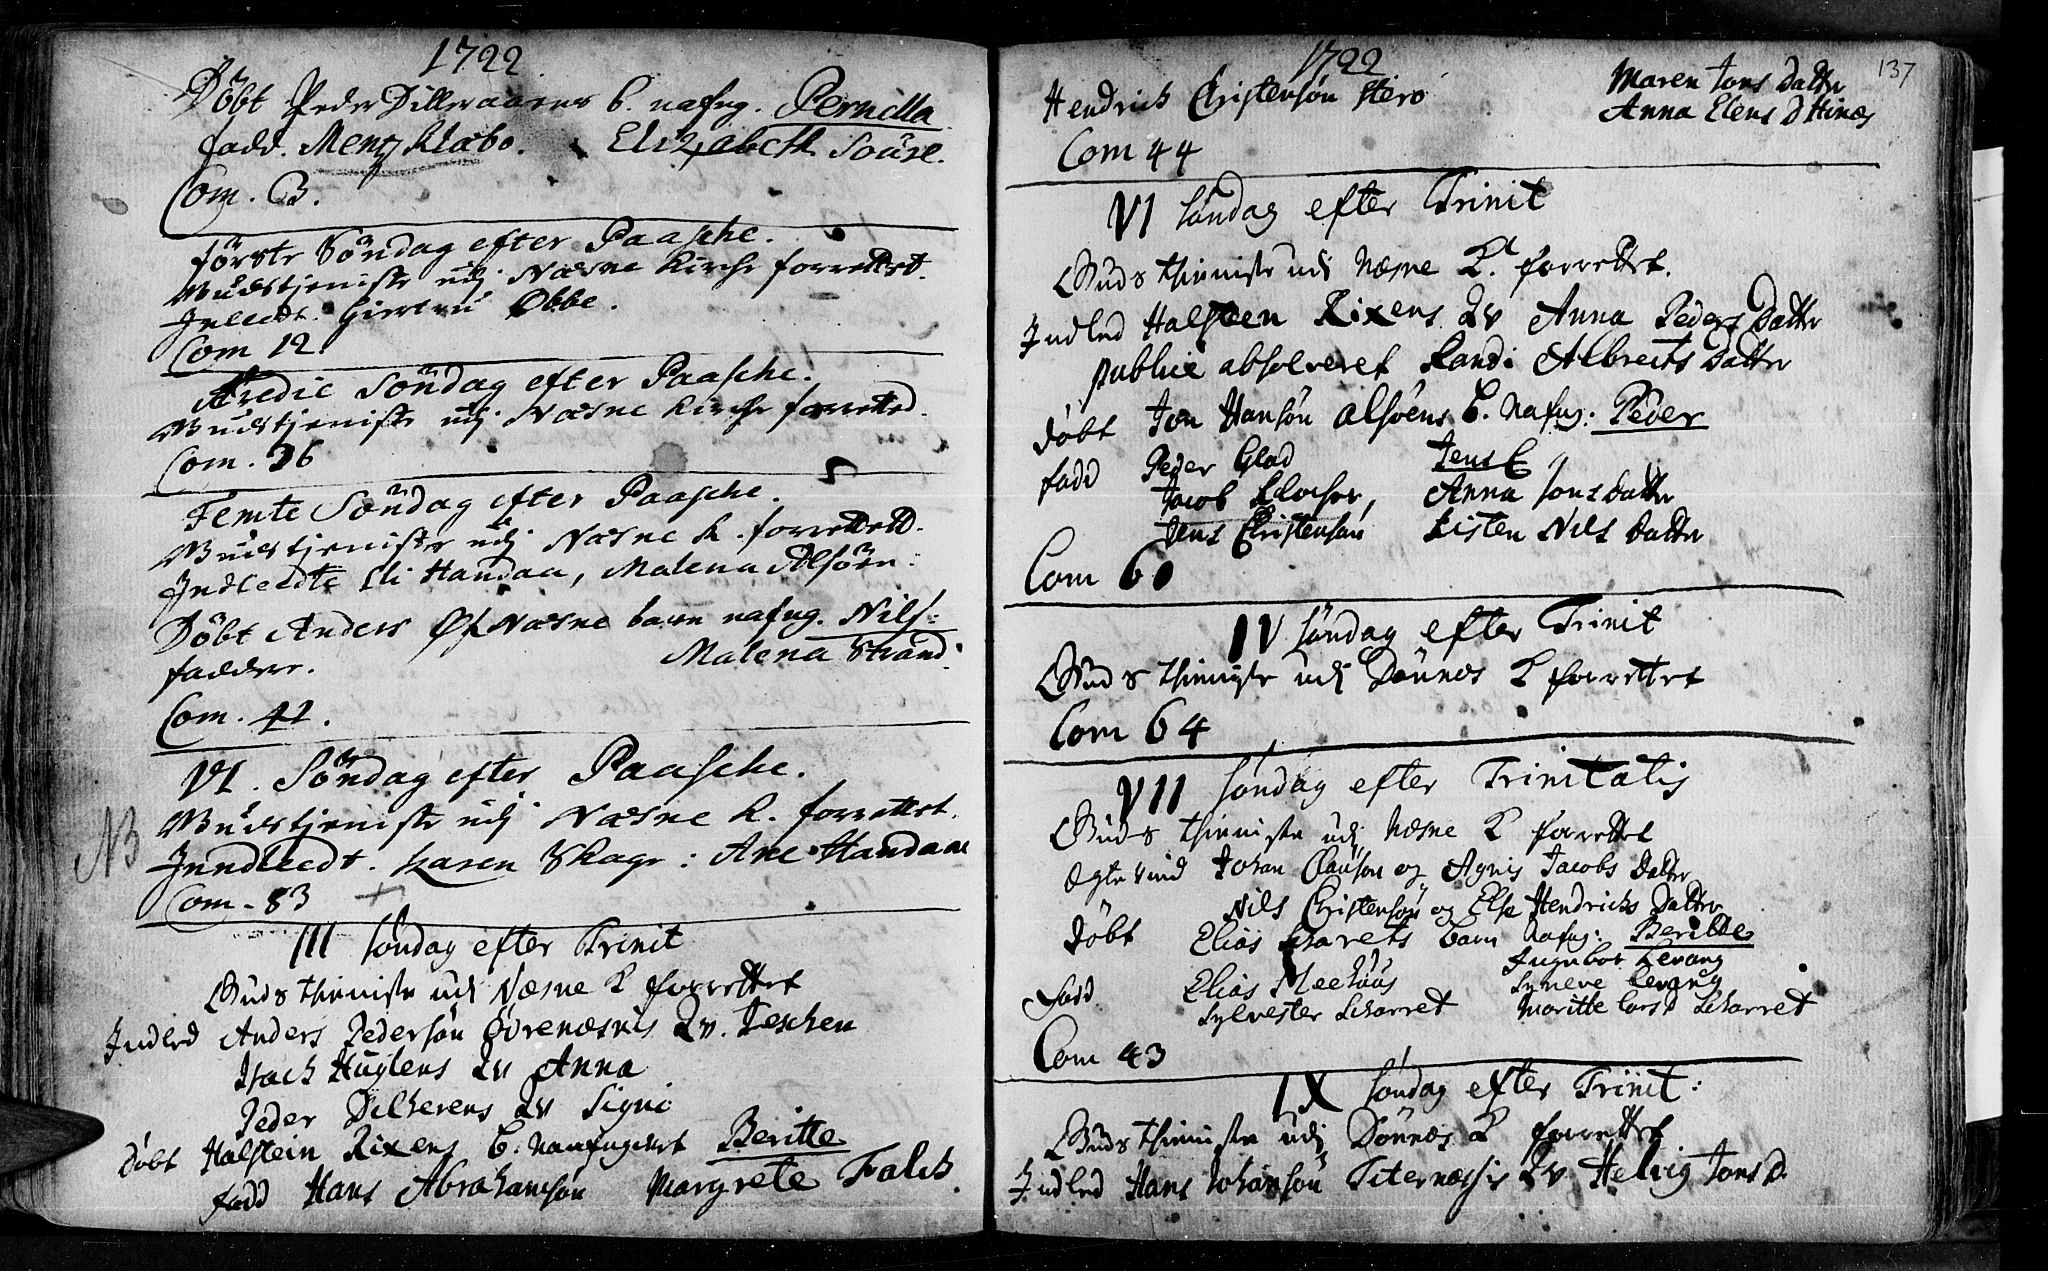 1722
Döbt Peder Dilleraaens b. nafng. Pernilla
fadd. Mentz Klabo. Elizabeth Souse.
Com. 13.
förste Söndag efter Paasche.
Gudstjeniste udj Næsne Kirche forrettet.
Inledt. Giertru Øbbe.
Com 12
Tredie Söndag efter Paasche.
Gudstjeniste udj Næsne Kirche forretted.
Com. 36
Femte Söndag efter Paasche.
Gudstjeniste udj Næsne K. forrettett.
Indleedte Eli Handaa, Malena Alsöen.
Döbt Anders Næsne barn nafng. Nils.
faddere. Malena Strand.
Com. 41.
VI. Söndag efter Paasche.
NB Gudstjeniste udj Næsne K. forrettet.
Inndleedt. Karen Skage: Ane Handaae
Com. 83
III søndag efter Trinit
Guds thieniste udi Næsne K forrettet
Indled Anders Pedersøn Øvrenæsnis Qv.
Isach Huglens Qv Anna
Peder Dilkerens Qv Signi
døbt Halstein Rixens b. naufngivet Beritte
fadd Hans Abrahamsøn Margrete Falch.
1722
137
Hendrich Christensøn Herø Maren Jons Datter
Anna Elens D Hinæs
Com 44
VI søndag efter Trinit
Guds thieniste udi Næsne K. forrettet.
Indled Halsteen Rixens Qv Anna Peders Datter
publice absolveret Randi Albreits Datter
døbt Jon Hansøn Alsøens b. nafng: Peder
fadd Peder Glad Jens C
Jacob Klocher, Anna Jons datter
Jens Christensøn Kisten Nils Datter
Com 60
IV søndag efter Trinit
Guds thieniste udj Dønnes K forrettet
Com 64
VII søndag efter Trinitatis
Guds thieniste udj Næsne K forrettet
Ægte vied Johan Clausøn og Agnis Jacobs Datter
Nils Christensøn og Else Hendrichs Datter
døbt Elias Scharets barn nafng: Beritte
Ingebor Levang
Fadd Elias Meehuus Synneve Levang
Sylvester Scharret Maritte Lars D Scharret
Com 43
IX søndag efter Trinit:
Guds thieniste udj Dönnæs K forrettet
Indled Hans Johansøn Qv Helvig Jons D.